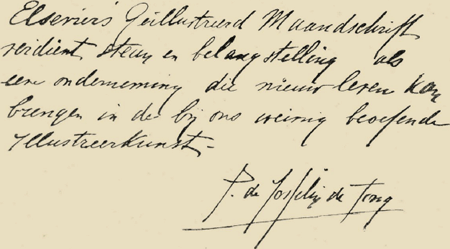 Elsevier's Geïllustreerd Maandschrift
verdient steun en belangstelling als
eene onderneming die nieuw leven kan
brengen in de bij ons weinig beoefende
Illustreerkunst -
P. de Josselin de Jong